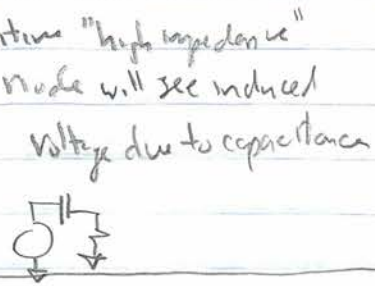 "high impedance"
node will see induced
voltage due to capacitance